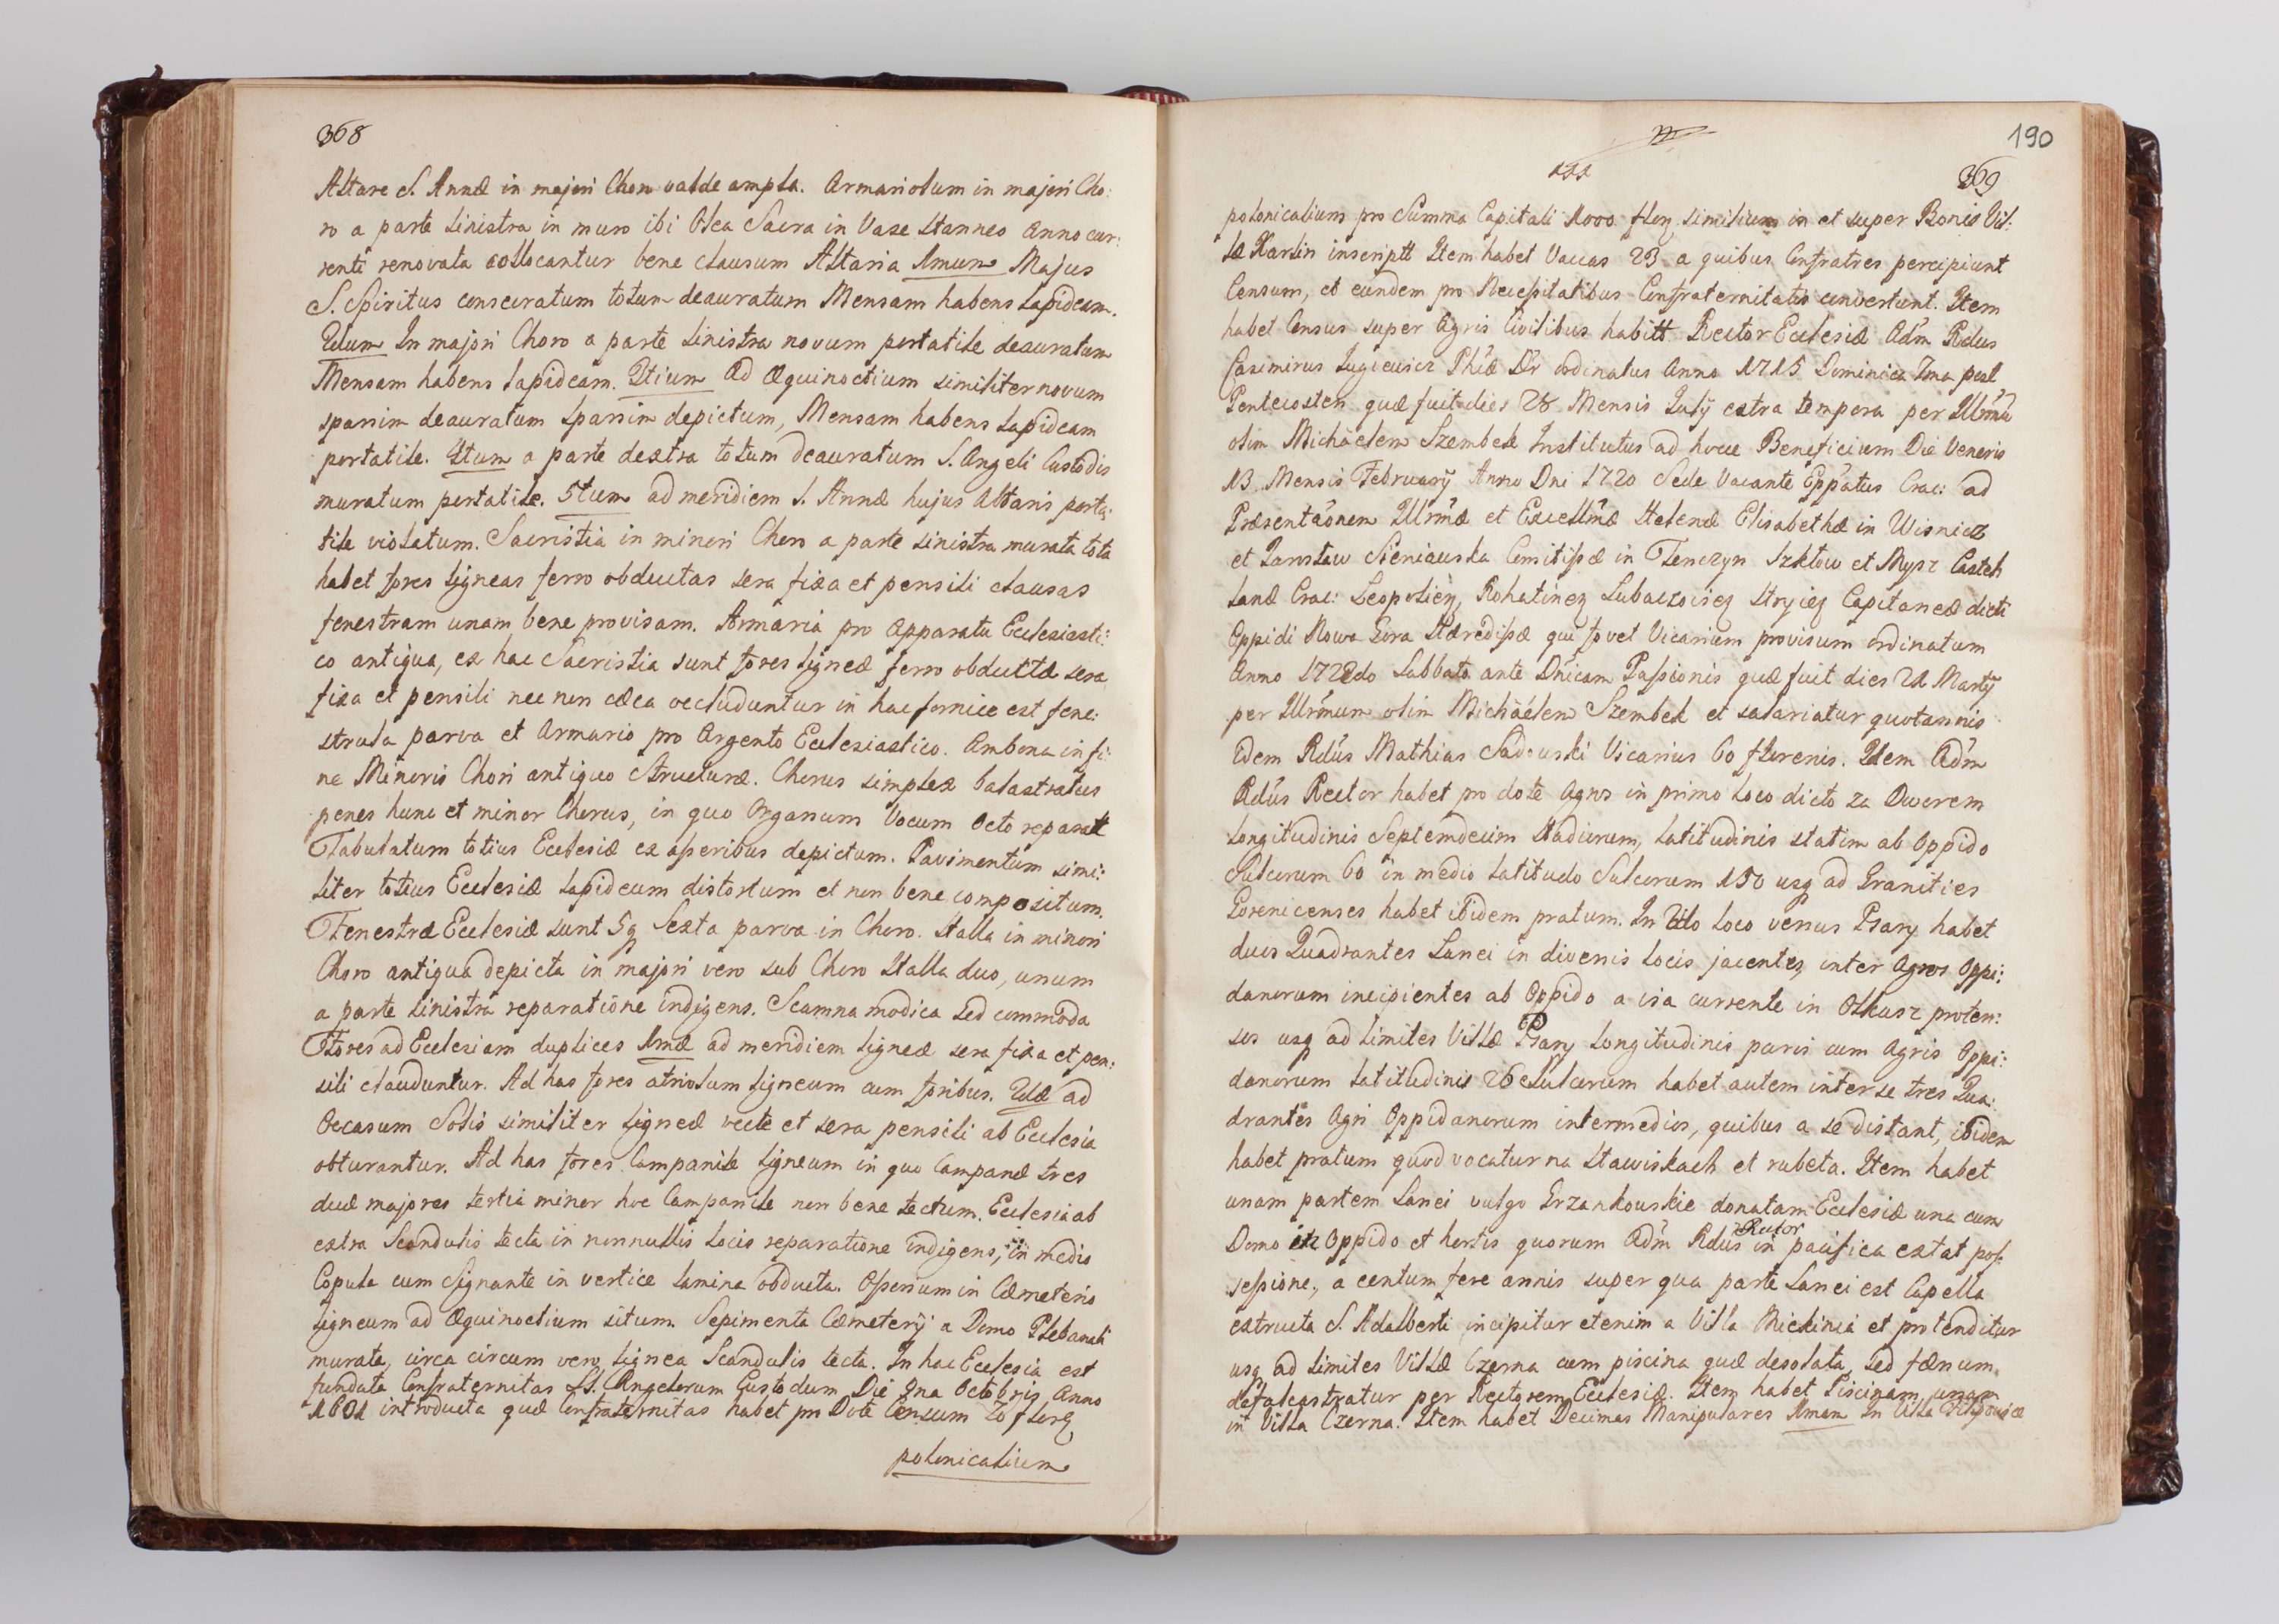 368
Altare S. Annæ in majori Choro valde ampla. Armariolum in majori Cho:
ro a parte sinistra in muro ibi Olea Sacra in Vase stanneo Anno cur:
renti renovata collocantur bene clausum Altaria 1mum Majus
S. Spiritus consecratum totum deauratum Mensam habens lapideam.
2dum In majori Choro a parte sinistra novum portatile deauratum
Mensam habens lapideam. 3tium Ad Æquinoctium similiter novum
sparsim deauratum sparsim depictum, Mensam habens lapideam
portatile. 4tum a parte dextra totum deauratum S. Angeli Custodis
muratum portatile. 5tum ad meridiem S. Annæ hujus Altaris porta:
tile violatum. Sacristia in minori Choro a parte sinistra murata tota
habet fores ligneas ferro obductas sera fixa et pensili clausas
fenestram unam bene provisam. Armaria pro Apparatu Ecclesiasti:
co antiqua, ex hac Sacristia sunt fores ligneæ ferro obductæ sera
fixa et pensili nec non cæca recluduntur in hac fornice est fene:
strula parva et Armario pro Argento Ecclesiastico. Ambona in fi:
ne Minoris Chori antiquo Structuræ. Chorus simplex balastratus
penes hunc et minor Chorus, in quo Organum Vocum Octo reparatt
Tabulatum totius Ecclesiæ ex asseribus depictum. Pavimentum simi:
liter totius Ecclesiæ lapideum distortum et non bene compositum.
Fenestræ Ecclesiæ sunt 5q Sexta parva in Choro. Stalla in minori
Choro antiqua depicta in majori vero sub Choro Stalla duo, unum
a parte sinistra reparatione indigens. Scamna modica sed commoda
Fores ad Ecclesiam duplices 1mæ ad meridiem ligneæ sera fixa et pen:
sili clauduntur. Ad has fores atriolum ligneum cum foribus. 2dæ ad
Occasum Solis similiter ligneæ vecte et sera pensili ab Ecclesia
obturantur. Ad has fores Campanile ligneum in quo Campanæ tres
duæ majores tertia minor hoc Campanile non bene tectum. Ecclesia ab
extra Scandulis tecta in nonnullis locis reparatione indigens, in medio
Copula cum Signante in vertice lamina obducta. Ossorium in Cæmeterio
ligneum ad Æquinoctium situm. Sepimenta Cæmeterij a Domo Plebanali
murata, circa circum vero lignea Scandulis tecta. In hac Ecclesia est
fundata Confraternitas SS. Angelorum Custodum Die 2na Octobris Anno
1601 introducta quæ Confraternitas habet pro Dote Censum 70 florq
polonicalium
190
369
polonicalium pro Summa Capitali 1000 florq similium in et super Bonis Vil:
læ Karlin inscriptt Item habet Vaccas 23 a quibus Confratres percipiunt
Censum, et eundem pro Necessitatibus Confraternitatis convertunt. Item
habet Census super Agris Civilibus habitt Rector Ecclesiæ Adm Rdus
Casimirus Lugiewicz Phiæ Dr ordinatus Anno 1715 Dominica 7ma post
Pentecosten quæ fuit dies 28 Mensis Julij extra tempora per Illrmu
olim Michäelem Szembek Institutus ad hocce Beneficium Die Veneris
13 Mensis February Anno Dni 1720 Sede Vacante Eppatus Crac: ad
Præsentaonem Illrmæ et Excellmæ Helenæ Elisabethæ in Wisnicz
et Jarosław Sieniawska Comitissæ in Tenczyn Szkłow et Mysz Castel:
lanæ Crac: Leopolieq, Rohatineq Lubaczovieq Stryieq Capitaneæ dicti
Oppidi Nowa Gora Hæredissæ qui fovet Vicarium provisum ordinatum
Anno 1722do Sabbato ante Dnicam Passionis quæ fuit dies 21 Martij
per Illrmum olim Michäelem Szembek et salariatur quotannis
idem Rdus Mathias Sadowski Vicarius 60 florenis. Item Adm
Rdus Rector habet pro dote Agros in primo loco dicto za Dworem
longitudinis Septemdecim Stadiorum, latitudinis statim ab Oppido
Sulcorum 60 in medio latitudo Sulcorum 150 usq ad Granities
Gorenicenses habet ibidem pratum. In 2do loco versus Psary habet
duos Quadrantes Lanei in diversis locis jacentes, inter Agros Oppi:
danorum incipientes ab Oppido a via currente in Olkusz proten:
sos usq ad limites Villæ Psary longitudinis paris cum Agris Oppi:
danorum latitudinis 26 Sulcorum habet autem inter se tres Qua:
drantes Agri Oppidanorum intermedios, quibus a se distant, ibidem
habet pratum quod vocatur na Stawiskach et rubeta. Item habet
unam partem Lanei vulgo Grzankowskie donatam Ecclesiæ una cum
Rector
Domo in Oppido et hortis quorum Adm Rdus in pacifica extat pos:
sessione, a centum fere annis super qua parte Lanei est Capella
extructa S. Adalberti incipitur etenim a Villa Miekinia et protenditur
usq ad limites Villæ Czerna cum piscina quæ desolata, sed fænum
defalcastratur per Rectorem Ecclesiæ. Item habet Piscinam unam
in Villa Czerna. Item habet Decimas Manipulares 1mam In Villa Filipowice